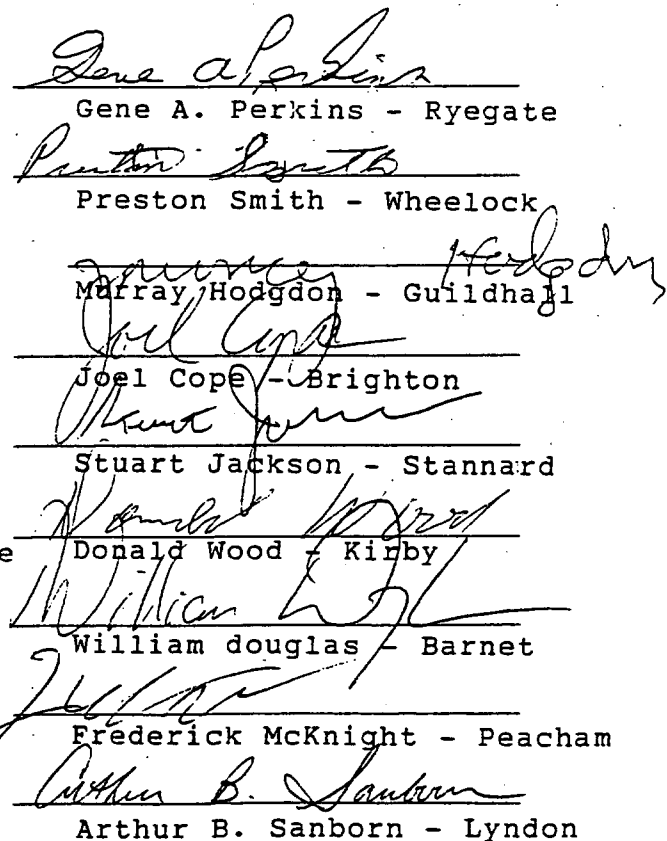 Gene A Perkins
Gene A. Perkins - Ryegate
Preston Smith
Preston Smith - Wheelock
Murray Hodgdon
Murray Hodgdon - Guildhall
Joel Cope
Joel Cope - Brighton
Stuart Jackson - Stannard
Donald Wood
e Donald Wood - Kirby
William
William douglas - Barnet
Frederick McKnight - Peacham
Arthur B. Sanborn
Arthur B. Sanborn - Lyndon